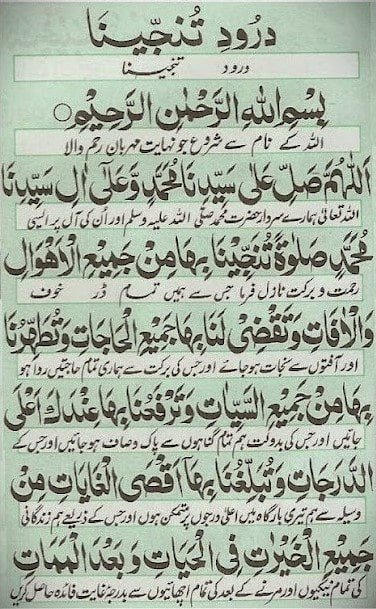 درودِ تُنَجِّينَا
درود تنجینا
بِسْمِ اللّٰهِ الرَّحْمٰنِ الرَّحِيْمِ
اللہ کے نام سے شروع جو نہایت مہربان رحم والا
اَللّٰهُمَّ صَلِّ عَلٰى سَيِّدِنَا مُحَمَّدٍ وَّعَلٰٓى اٰلِ سَيِّدِنَا
اللہ تعالیٰ ہمارے سردار حضرت محمد صلی اللہ علیہ وسلم اور اُن کی آل پر ایسی
مُحَمَّدٍ صَلٰوةً تُنَجِّيْنَا بِهَا مِنْ جَمِيْعِ الْاَهْوَالِ
رحمت و برکت نازل فرما جس سے ہمیں تمام ڈر خوف
وَالْاٰفَاتِ وَتَقْضِىْ لَنَا بِهَا جَمِيْعَ الْحَاجَاتِ وَتُطَهِّرُنَا
اور آفتوں سے نجات ہو جائے اور جس کی برکت سے ہماری تمام حاجتیں روا ہو
بِهَا مِنْ جَمِيْعِ السَّيِّاٰتِ وَتَرْفَعُنَا بِهَا عِنْدَكَ اَعْلَى
جائیں اور جس کی بدولت ہم تمام گناہوں سے پاک و صاف ہو جائیں اور جس کے
الدَّرَجَاتِ وَتُبَلِّغُنَا بِهَآ اَقْصَى الْغَايَاتِ مِنْ
وسیلہ سے ہم تیری بارگاہ میں اعلیٰ درجوں پر متمکن ہوں اور جس کے ذریعے ہم زندگانی
جَمِيْعِ الْخَيْرَاتِ فِى الْحَيَاتِ وَبَعْدَ الْمَمَاتِ
کی تمام نیکیوں اور مرنے کے بعد کی تمام اچھائیوں سے بدرجۂ غایت فائدہ حاصل کریں